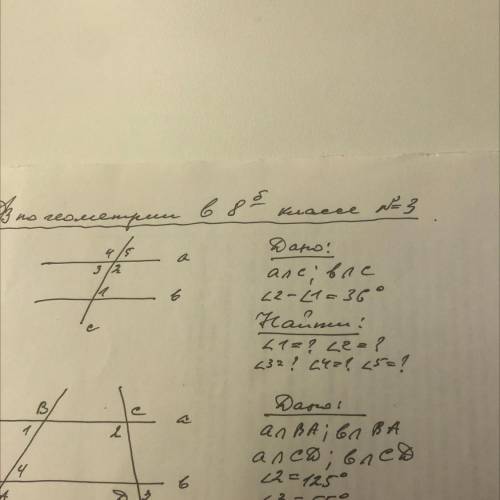 по геометрии в 8 б классе №3.
4 5
a
3 2
1
b
c
Дано:
a∩c; b∩c
∠2-∠1=36°
Найти:
∠1=? ∠2=?
∠3=? ∠4=? ∠5=?
B C
a
1 2
4
b
A D 3
Дано:
a∩BA; b∩BA
a∩CD; b∩CD
∠2=125°
∠3=55°